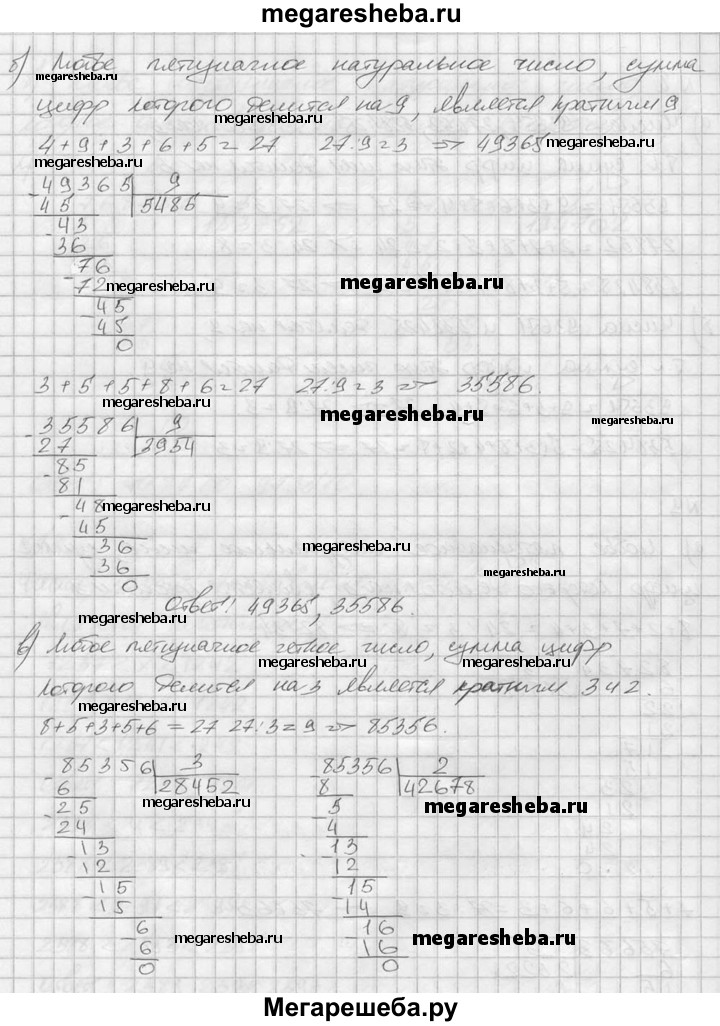 megaresheba.ru
б) Любое пятизначное натуральное число, сумма
megaresheba.ru
цифр которого делится на 9, является кратным 9
megaresheba.ru
4+9+3+6+5=27 27:9=3 => 49365
megaresheba.ru
megaresheba.ru
-49365 | 9
45 5485
-43
36
-76
72
megaresheba.ru
megaresheba.ru
-45
45
0
3+5+5+8+6=27 27:9=3 => 35586.
megaresheba.ru
megaresheba.ru
megaresheba.ru
-35586 | 9
27 3954
-85
81
-48
megaresheba.ru
45
-36
megaresheba.ru
36
megaresheba.ru
0
Ответ: 49365, 35586.
megaresheba.ru
в) Любое пятизначное четное число, сумма цифр
megaresheba.ru
megaresheba.ru
которого делится на 3 является кратным 3 и 2.
megaresheba.ru
8+5+3+5+6=27 27:3=9 => 85356.
-85356 | 3
6 28452
megaresheba.ru
-25
24
-13
12
-15
15
-6
6
megaresheba.ru
0
-85356 | 2
8 42678
megaresheba.ru
-5
4
-13
12
-15
14
-16
16
megaresheba.ru
0
Мегарешеба.ру